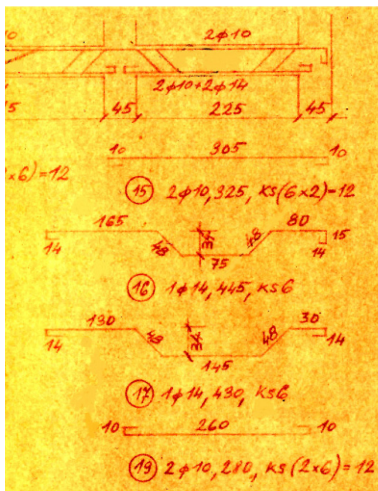 10 2ϕ10
2ϕ10+2ϕ14
45 225 45
10 305 10
×6)=12
15 2ϕ10, 325, KS(6×2)=12
165 80
14 48 34 48 15
75 14
16 1ϕ14, 445, KS6
130 30
14 48 34 48 14
145
17 1ϕ14, 430, KS6
10 260 10
19 2ϕ10, 280, KS(2×6)=12